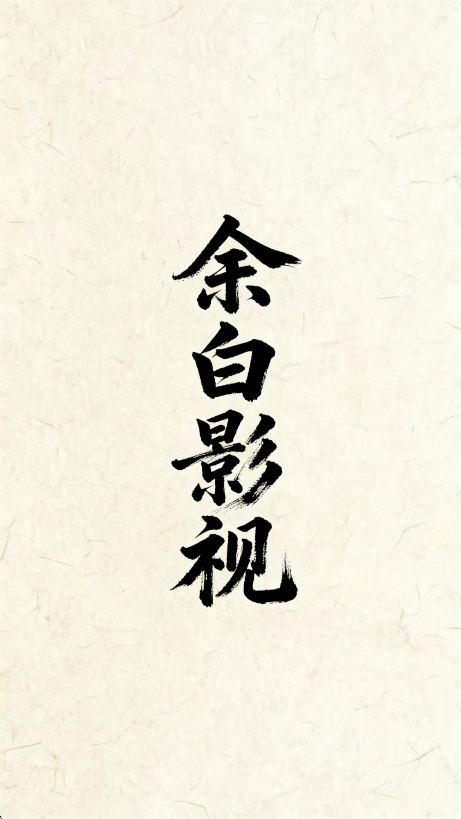 余白影视